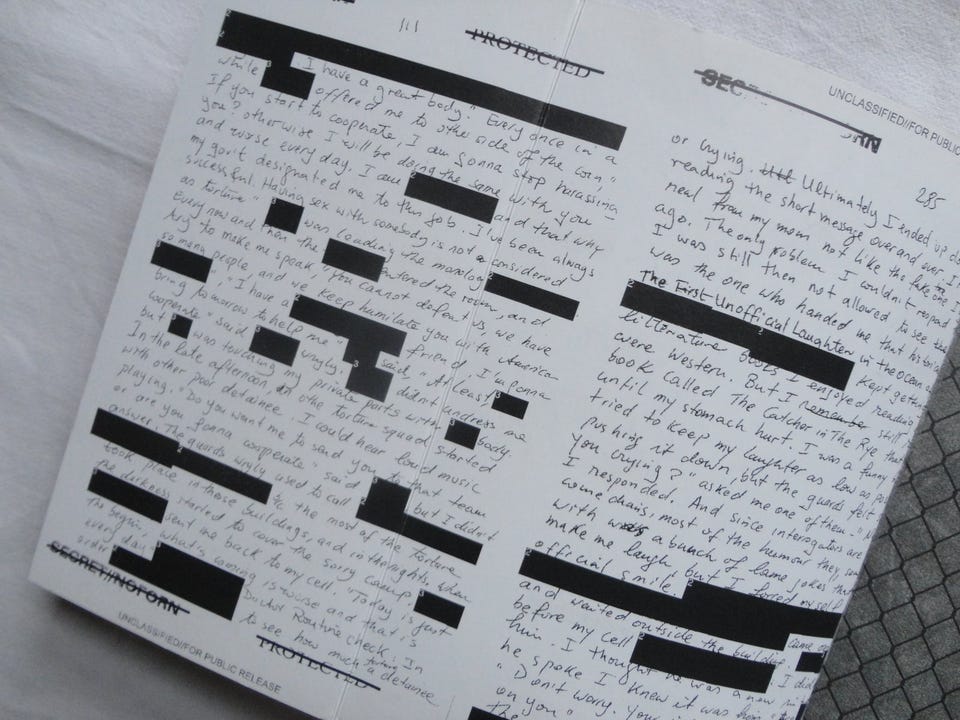 PROTECTED
I have a great body." Every once in a
while offered me to other side of the coin, "
If you start to cooperate, I am gonna stop harassing
you? otherwise I will be doing the same with you
and worse every day. I am and that why
my gov't designated me to this job. I've been always
successful. Having sex with somebody is not considered
as torture" was leading the monolog
Every now and then the entered the room, and
try to make me speak, "You cannot defeat us, we have
so many people, and we keep humiliate you with American
", "I have a friend, I'm gonna
bring tomorrow to help me" said, "At least
cooperate" said wryly. didn't undress me
but was touching my private parts with body.
In the late afternoon, an other torture squad started
with other poor detainee. I could hear loud music
playing. "Do you want me to send you to that team
or are you gonna cooperate" said but I didn't
answer. The guards wryly used to call
the most of the torture
took place in those buildings, and in the nights, when
the darkness started to cover the sorry camp.
sent me back to my cell, "Today is just
the begin, what's coming is worse and that's
every day" Doctor Routine check. In
order to see how much torturing a detainee
SECRET//NOFORN
PROTECTED
UNCLASSIFIED//FOR PUBLIC RELEASE
SEC
UNCLASSIFIED//FOR PUBLIC
285
or crying. Ultimately I ended up
reading the short message over and over. I
real from my mom not like the fake one
ago. The only problem I couldn't respond
I was still then not allowed to see the
was the one who handed me that
The First Unofficial Laughter in the Ocean
Kept getting
litterature books I enjoyed reading
were western. But I remember still
book called The Catcher in The Rye that
until my stomach hurt. I was a funny
tried to keep my laughter as low as
pushing it down, but the guards felt
"You crying?" asked me one of them.
I responded. And since interrogators are
comedians, most of the humour they
with was a bunch of lame jokes that
make me laugh but I forced myself
official smile.
came
and waited outside the building. I
before my cell
him. I thought he was a new
he spoke I knew it was
"Don't worry. You
on you"
the